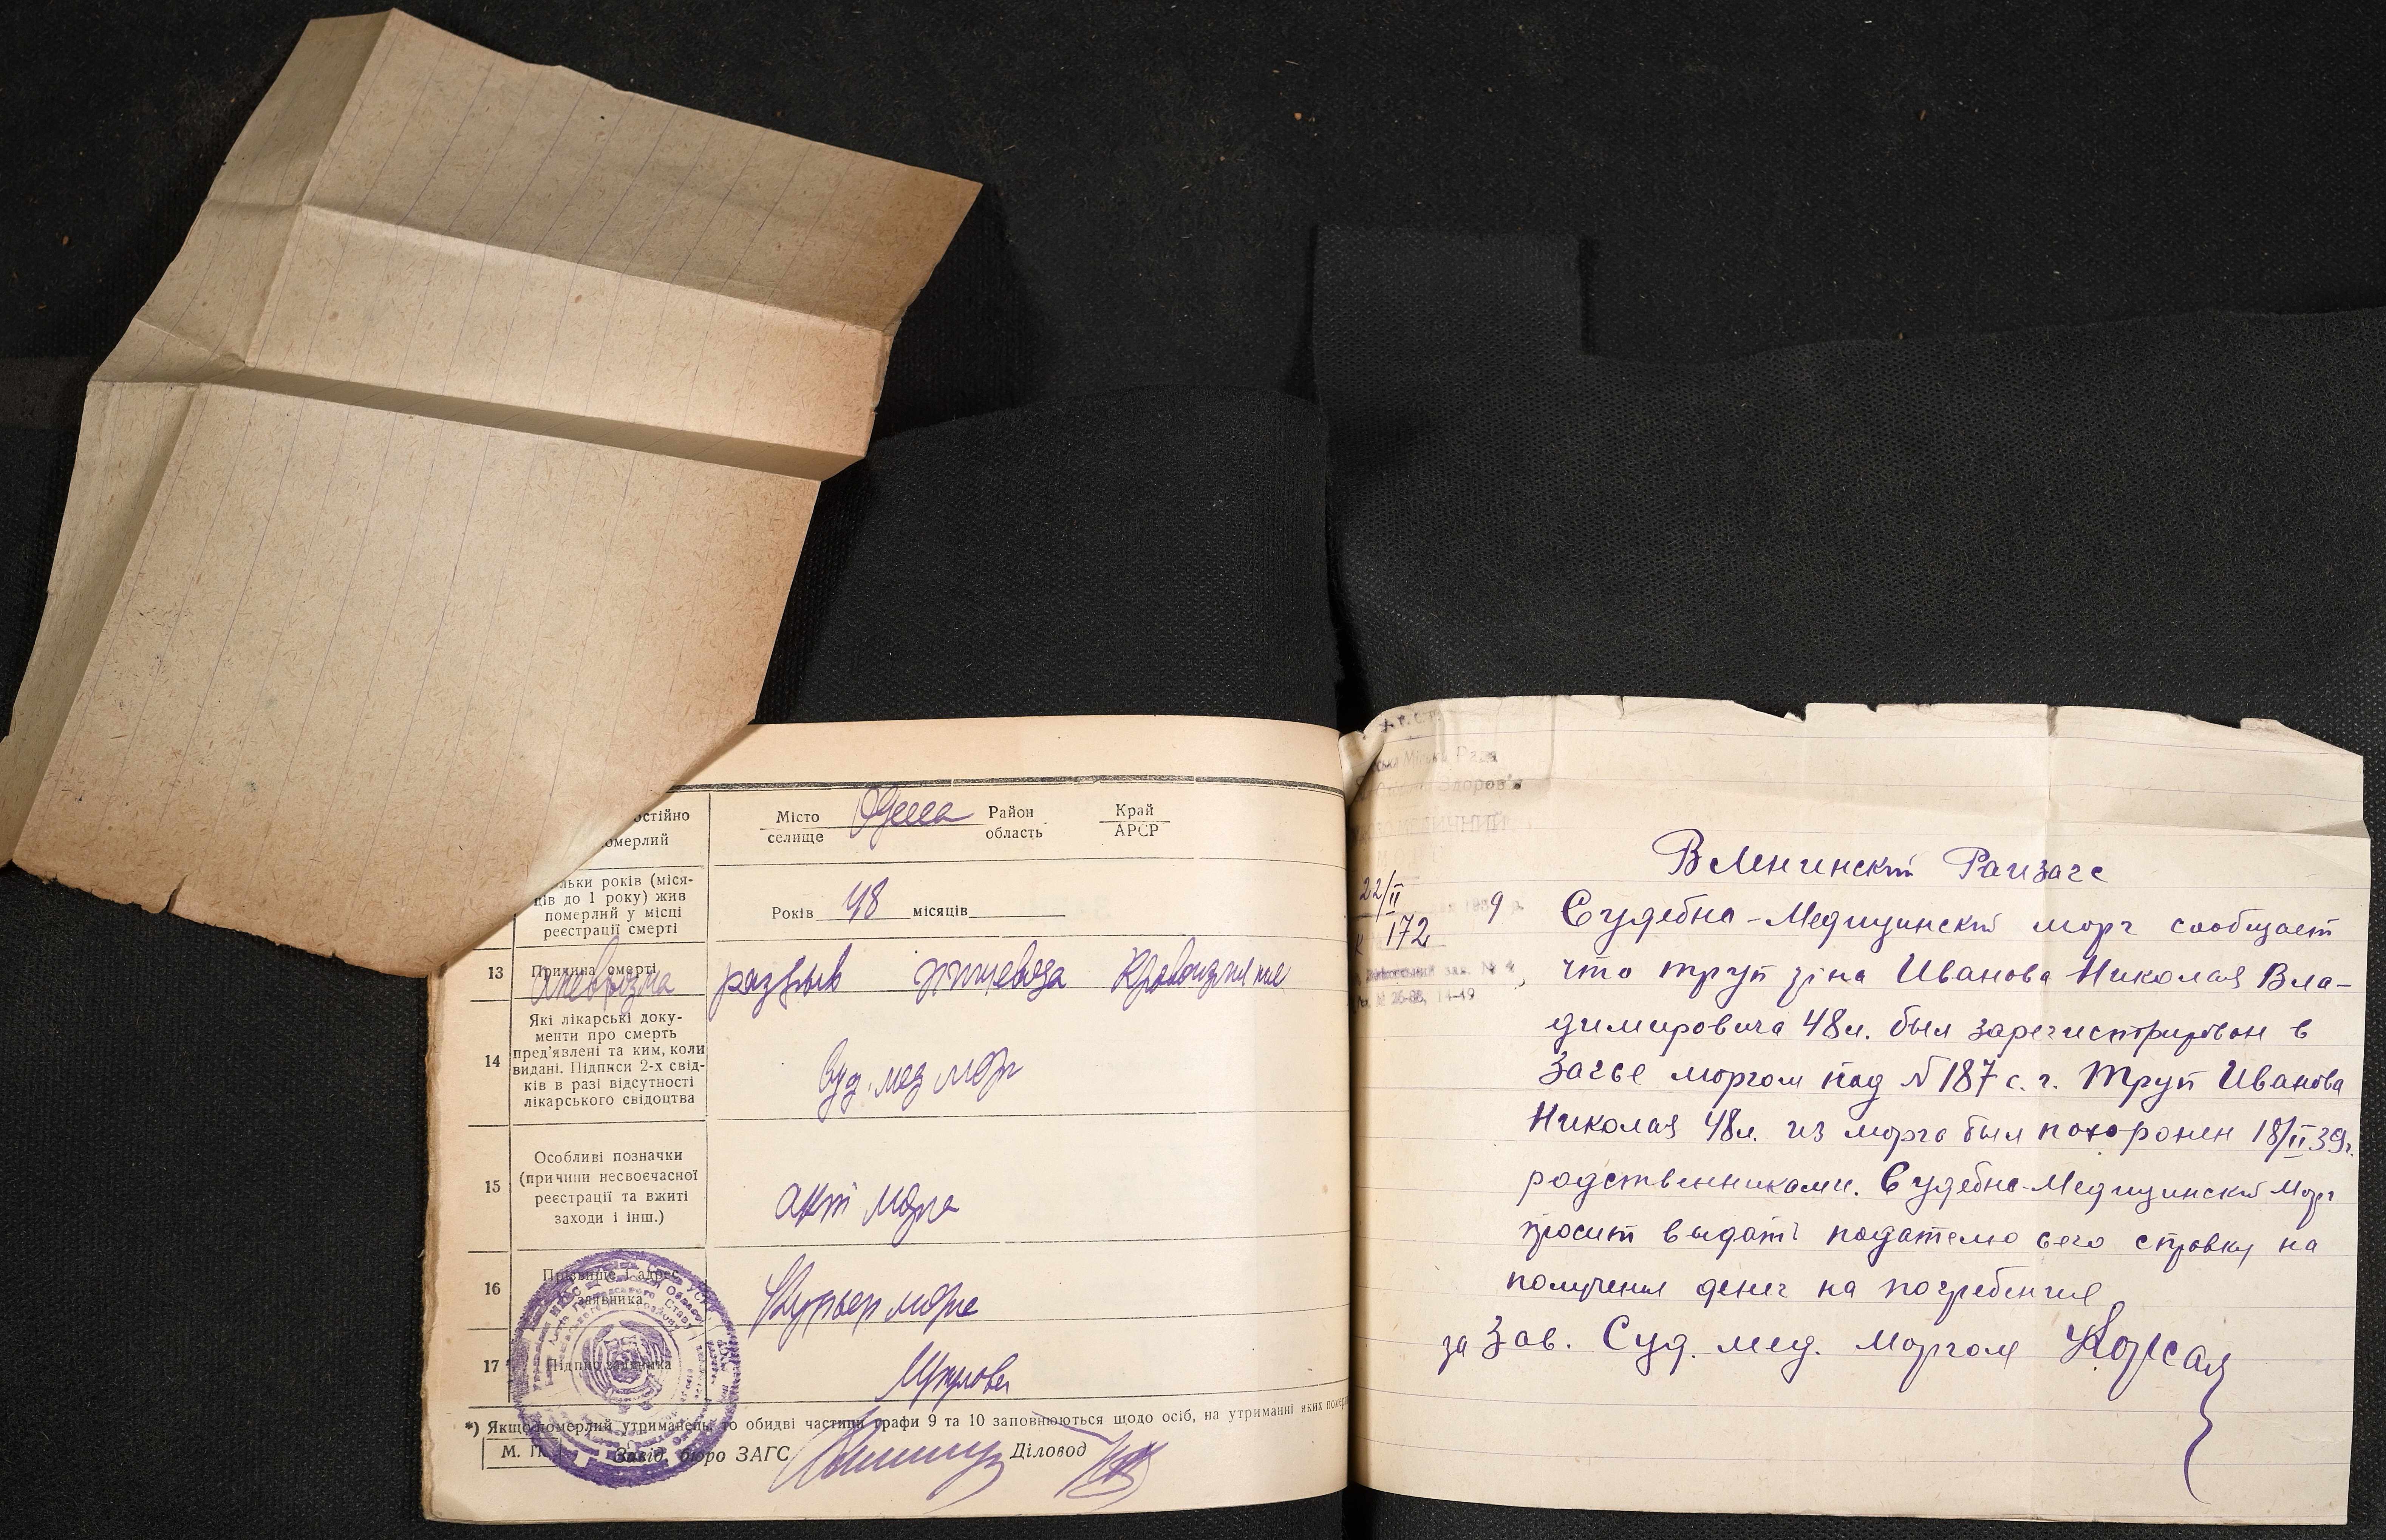 остійно
омерлий
Місто селище Одесса Район область Край АРСР
льки років (міся-
ців до 1 року) жив
померлий у місці
реєстрації смерті
Років 48 місяців
13 Причина смерті
разрыв пищевода
14 Які лікарські доку-
менти про смерть
пред'явлені та ким, коли
видані. Підписи 2-х свід-
ків в разі відсутності
лікарського свідоцтва
Суд. мед морг
15 Особливі позначки
(причини несвоєчасної
реєстрації та вжиті
заходи і інш.)
акт морга
16 Прізвище і адрес
заявника
Курьер морга
17 Підпис заявника
*) Якщо померлий утриманець, то обидві частини графи 9 та 10 заповнюються щодо осіб, на утриманні яких
М. П. Завід. бюро ЗАГС Діловод
Міська Рада
Здоров'я
22/II 9
172
В Ленинский Райзагс
Судебно-Медицинский морг сообщает
что труп гр-на Иванова Николая Вла-
димировича 48 л. был зарегистрирован в
Загсе моргом под № 187 с. г. Труп Иванова
Николая 48 л. из морга был похоронен 18/II 39 г.
родственниками. Судебно-Медицинский Морг
просит выдать подателю сего справку на
получения денег на погребения
за Зав. Суд. мед. Моргом